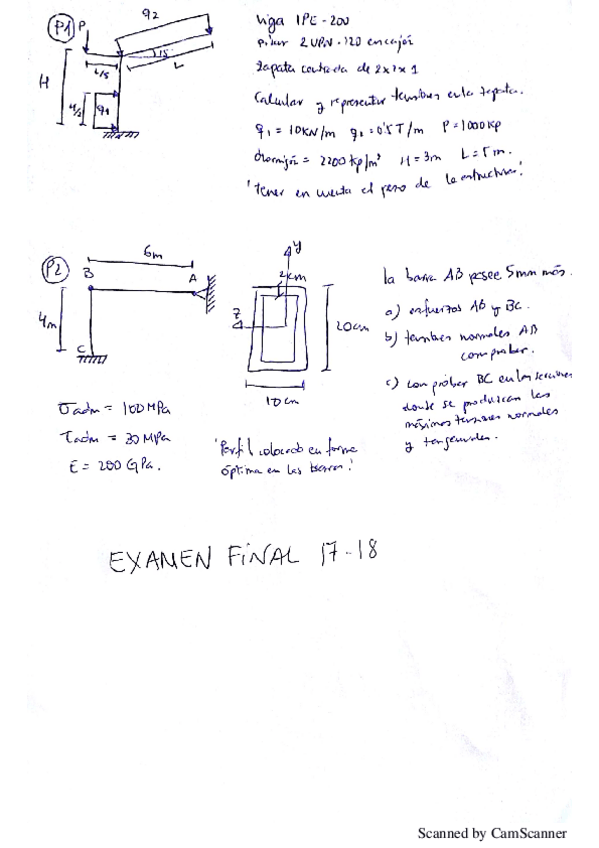 P1 P q2
Viga IPE-200
pilar 2 UPN-120 en cajón
15
L/5
L
zapata centrada de 2x2x1
H
H/2
q1
Calcular y representar tensiones en la zapata.
q1 = 10KN/m q2 = 0'5T/m P = 1000Kp
= 2200 Kp/m³ H = 3m L = 5m.
¡tener en cuenta el peso de la estructura!
P2
6m
B
A
4m
C
y
2cm
z
20cm
10cm
la barra AB posee 5mm más.
a) esfuerzos AB y BC.
b) tensiones normales AB
comprobar.
c) comprobar BC en las secciones
donde se produzcan las
máximas tensiones normales
y tangenciales.
σadm = 100MPa
τadm = 30 MPa
E = 200 GPa.
¡Perfil colocado en forma
óptima en las barras!
EXAMEN FINAL 17-18
Scanned by CamScanner